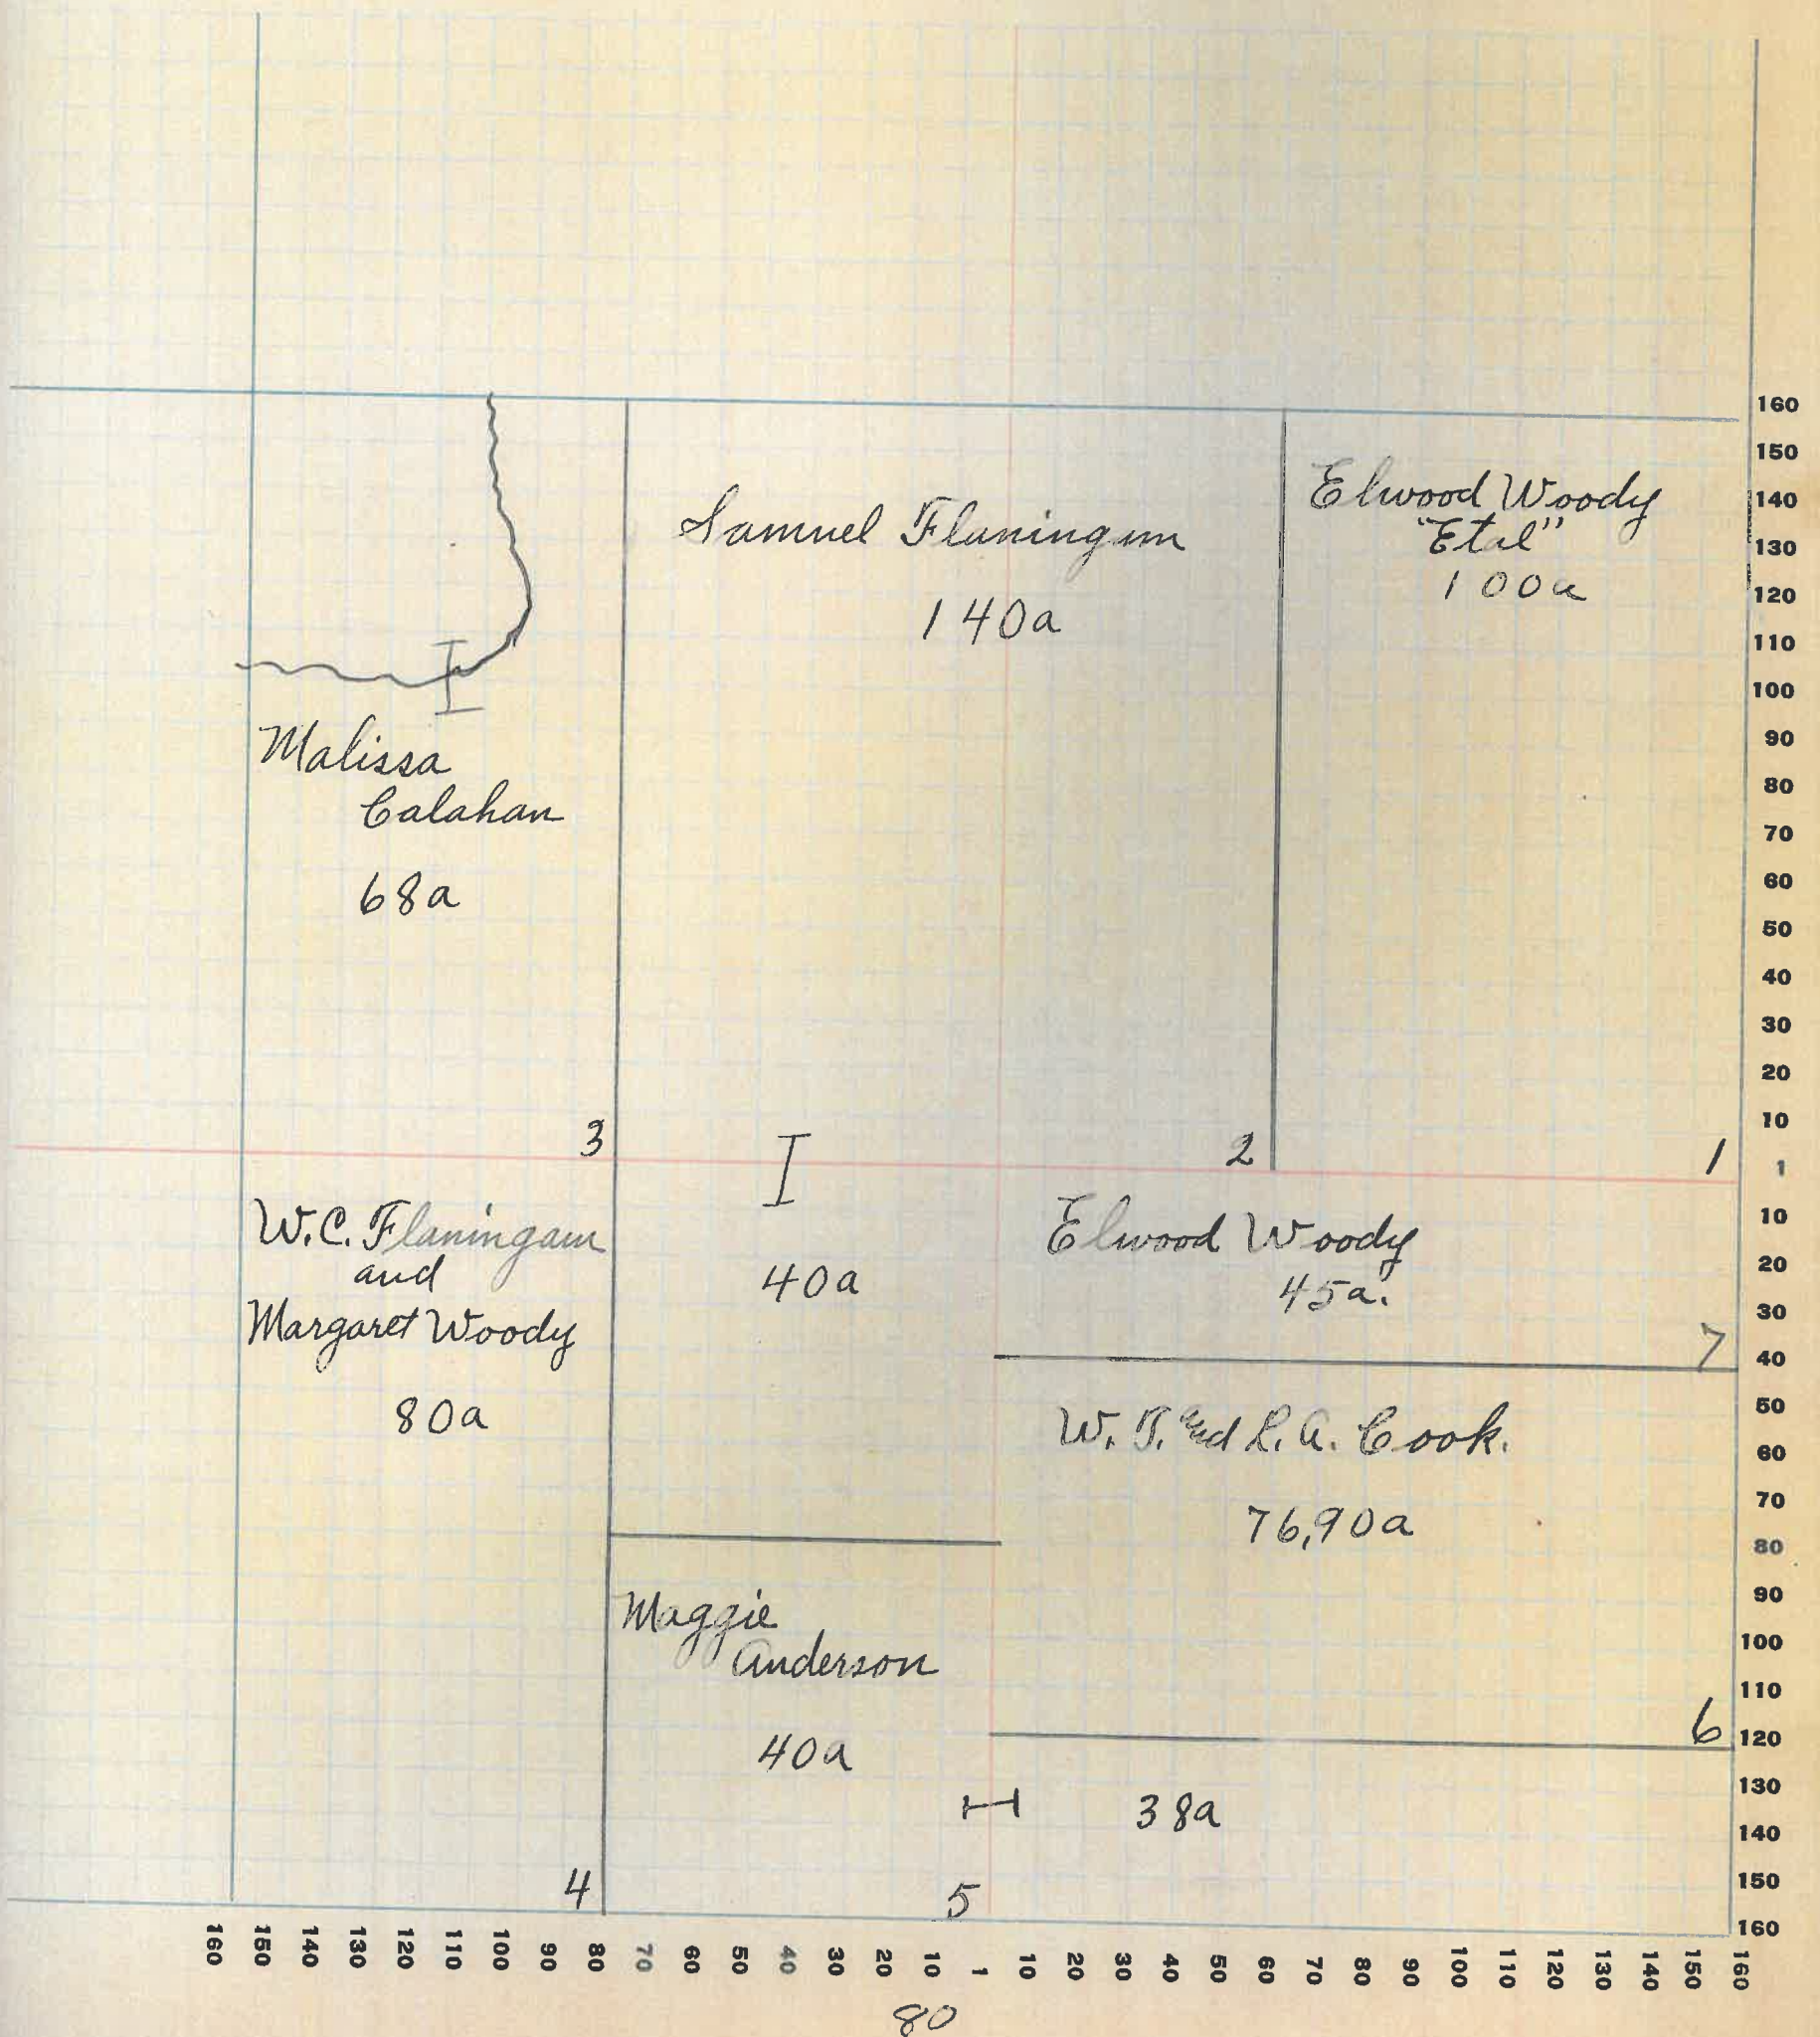 Samuel Flaningam
140a
Elwood Woody
"Etal"
100a
Malissa
Calahan
68a
3
2
1
W.C. Flaningam
and
Margaret Woody
80a
40a
Elwood Woody
45a.
7
W. T. and L. A. Cook.
76,90a
Maggie
Anderson
40a
6
38a
4
5
160
150
140
130
120
110
100
90
80
70
60
50
40
30
20
10
1
10
20
30
40
50
60
70
80
90
100
110
120
130
140
150
160
160 150 140 130 120 110 100 90 80 70 60 50 40 30 20 10 1 10 20 30 40 50 60 70 80 90 100 110 120 130 140 150 160
80